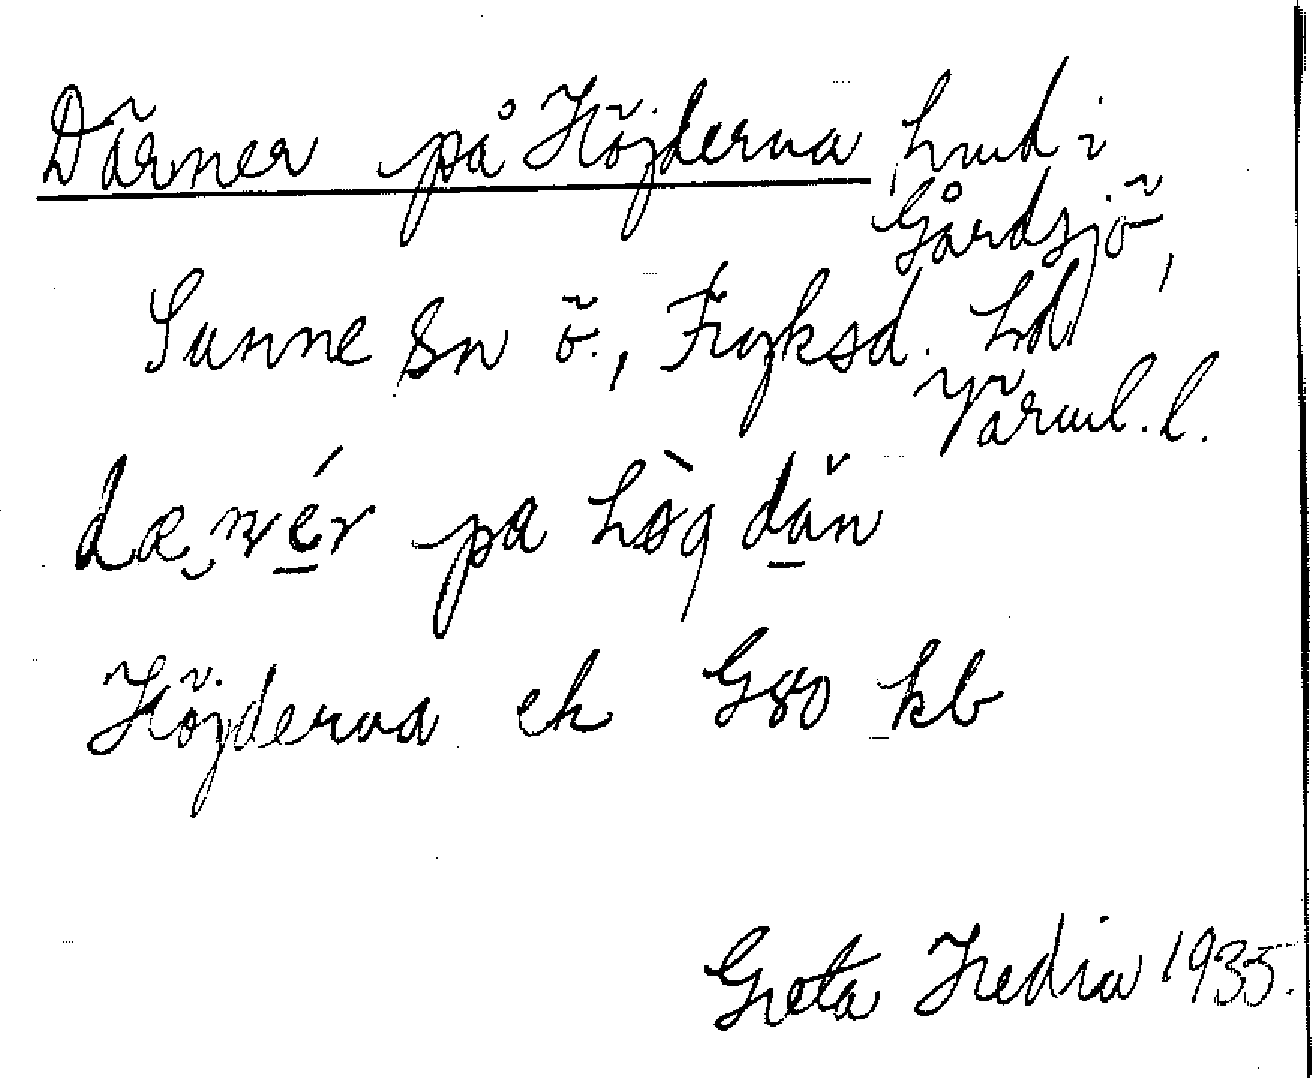 Därner på Höjderna hmd i
Gårdsjö,
Sunne Sn ö., Fryksd. hd
Värml. l.
på
Höjderna ek G80 kb
Greta Hedin 1935.